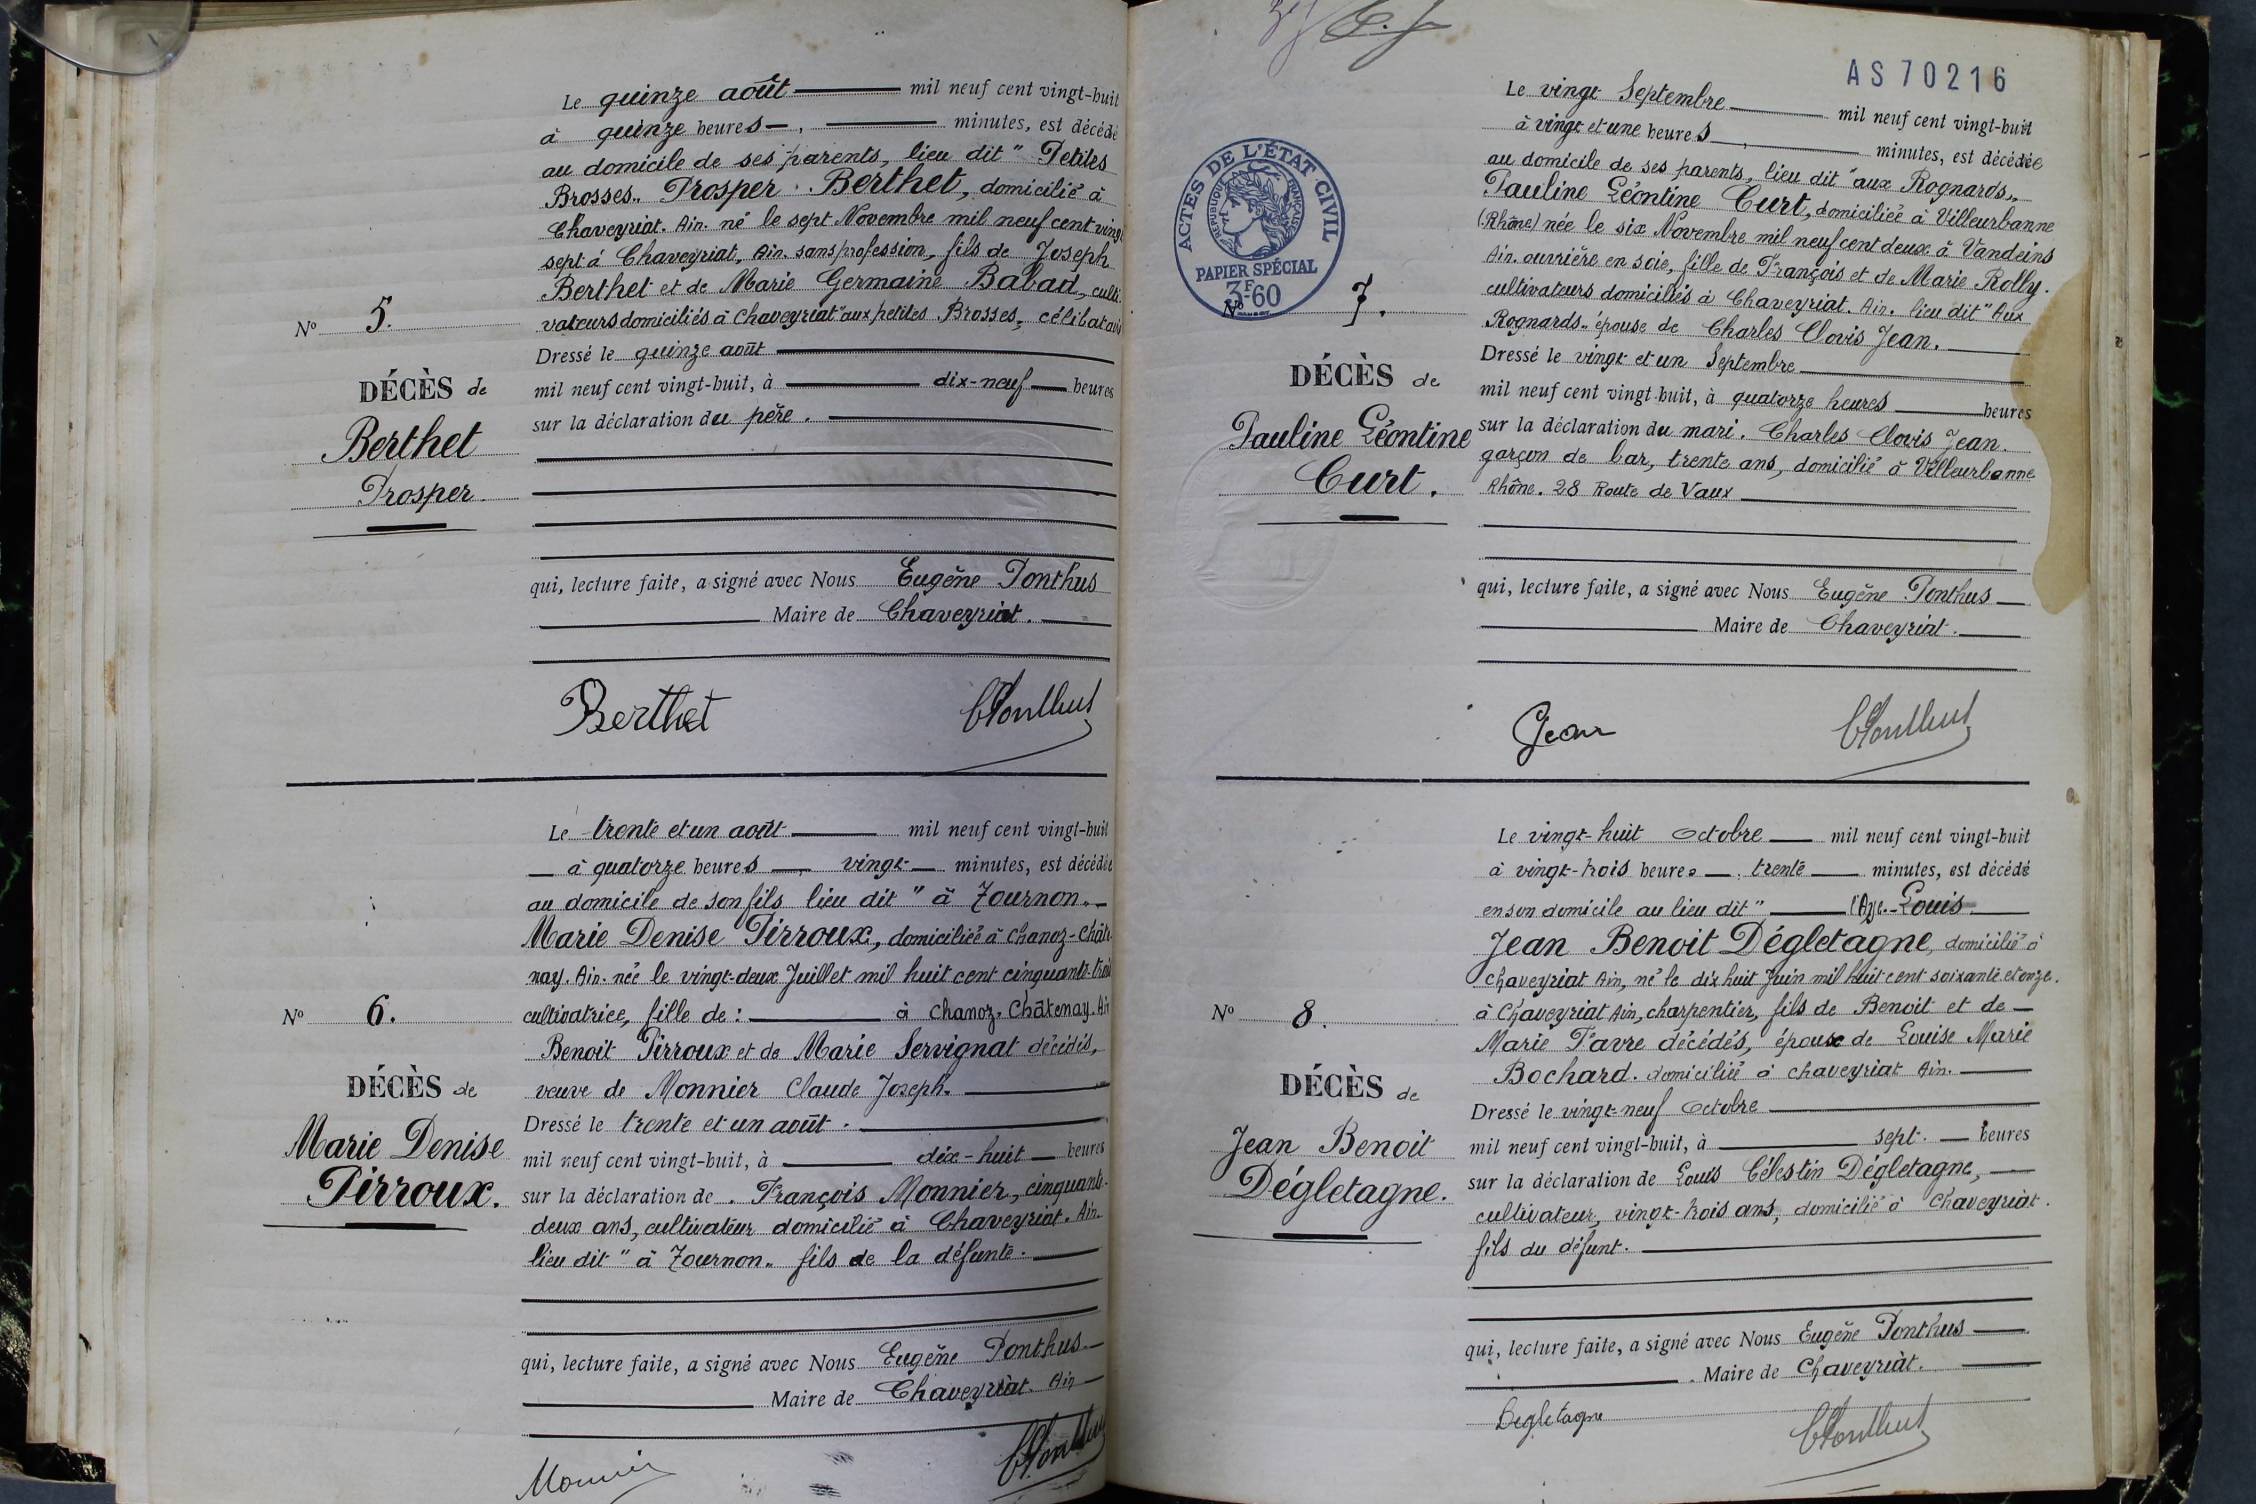 Le quinze août mil neuf cent vingt-huit
à quinze heures, minutes, est décédé
au domicile de ses parents, lieu dit " Petites
Brosses„ Prosper Berthet, domicilié à
Chaveyriat. Ain. né le sept Novembre mil neuf cent vingt
sept à Chaveyriat, Ain. sans profession, fils de Joseph
Berthet et de Marie Germaine Baband, culti-
vateurs domiciliés à Chaveyriat "aux petites Brosses, célibataire
Nº 5.
Dressé le quinze août
mil neuf cent vingt-huit, à dix-neuf heures
DÉCÈS de
sur la déclaration du père.
Berthet
Prosper
qui, lecture faite, a signé avec Nous Eugène Ponthus
Maire de Chaveyriat.
Berthet EPonthus
Le trente et un août mil neuf cent vingt-huit
à quatorze heures, vingt minutes, est décédée
au domicile de son fils lieu dit " à Tournon„
Marie Denise Pirroux, domiciliée à Chanoz-Châte-
nay. Ain. née le vingt-deux Juillet mil huit cent cinquante-trois
Nº 6.
cultivatrice, fille de : à Chanoz-Châtenay. Ain
Benoît Pirroux et de Marie Servignat décédés,
veuve de Monnier Claude Joseph.
DÉCÈS de
Marie Denise
Pirroux.
Dressé le trente et un août.
mil neuf cent vingt-huit, à dix-huit heures
sur la déclaration de . François Monnier, cinquante-
deux ans, cultivateur domicilié à Chaveyriat. Ain.
lieu dit " à Tournon„ fils de la défunte.
qui, lecture faite, a signé avec Nous Eugène Ponthus
Maire de Chaveyriat. Ain
Monnier EPonthus
AS70216
ACTES DE L'ÉTAT CIVIL
RÉPUBLIQUE FRANÇAISE
PAPIER SPÉCIAL
3F60
Le vingt Septembre mil neuf cent vingt-huit
à vingt et une heures, minutes, est décédée
au domicile de ses parents, lieu dit "aux Rognards„
Pauline Léontine Curt, domiciliée à Villeurbanne
(Rhône) née le six Novembre mil neuf cent deux à Vandeins
Ain. ouvrière en soie, fille de François et de Marie Rolly.
cultivateurs domiciliés à Chaveyriat. Ain. lieu dit "Aux
Rognards„ épouse de Charles Clovis Jean.
Nº 7.
Dressé le vingt et un Septembre
mil neuf cent vingt-huit, à quatorze heures heures
DÉCÈS de
Pauline Léontine
Curt.
sur la déclaration du mari. Charles Clovis Jean.
garçon de bar, trente ans, domicilié à Villeurbanne
Rhône. 28 Route de Vaux
qui, lecture faite, a signé avec Nous Eugène Ponthus
Maire de Chaveyriat.
Jean EPonthus
Le vingt-huit Octobre mil neuf cent vingt-huit
à vingt-trois heures, trente minutes, est décédé
en son domicile au lieu dit " Louis
Jean Benoit Dégletagne, domicilié à
Chaveyriat Ain, né le dix huit Juin mil huit cent soixante et onze.
Nº 8.
à Chaveyriat Ain, charpentier, fils de Benoit et de
Marie Favre décédés, époux de Louise Marie
Bochard. domicilié à Chaveyriat Ain.
DÉCÈS de
Jean Benoit
Dégletagne.
Dressé le vingt-neuf Octobre
mil neuf cent vingt-huit, à sept. heures
sur la déclaration de Louis Célestin Dégletagne,
cultivateur, vingt-trois ans, domicilié à Chaveyriat.
fils du défunt.
qui, lecture faite, a signé avec Nous Eugène Ponthus
Maire de Chaveyriat.
Degletagne EPonthus